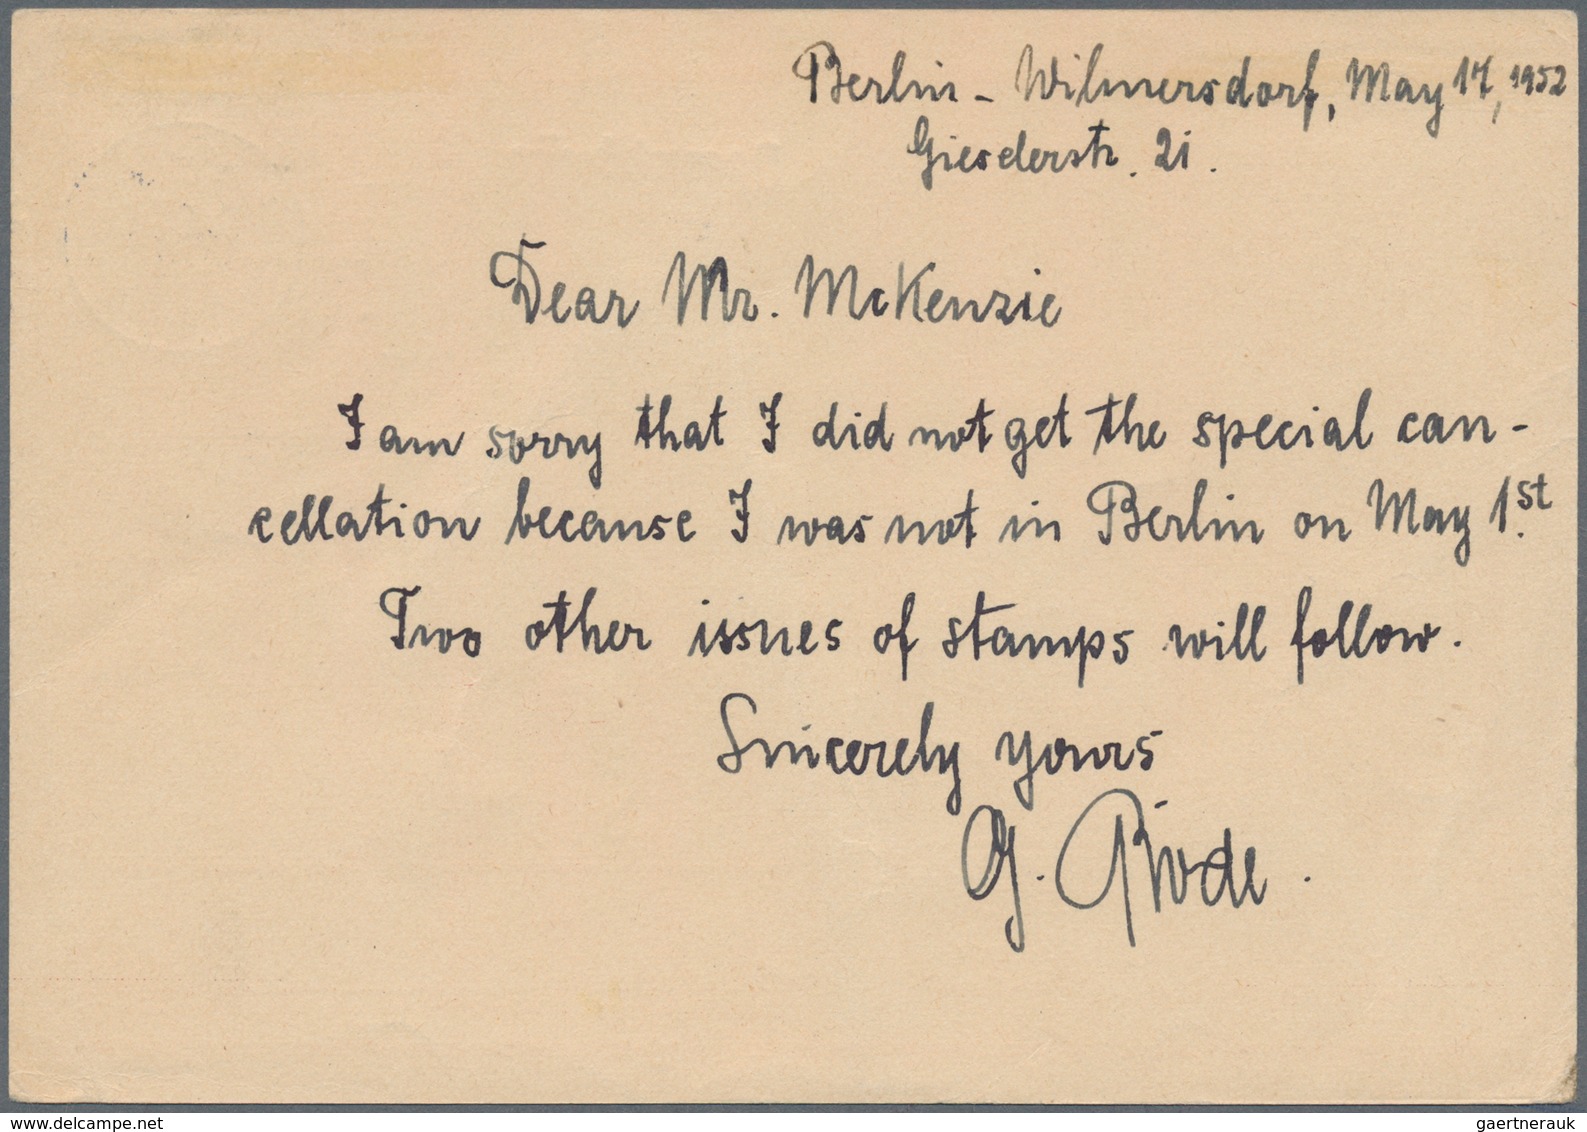 Berlin - Wilmersdorf, May 17, 1952
Gieselerstr. 21.
Dear Mr. McKenzie
I am sorry that I did not get the special can-
cellation because I was not in Berlin on May 1st.
Two other issues of stamps will follow.
Sincerely yours
G.
delcampe.net
gaertnerauk